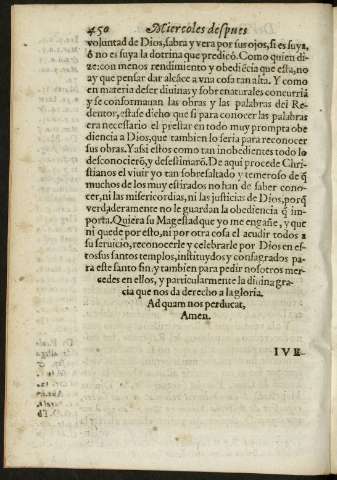 450 Miercoles despues
voluntad de Dios, sabra y vera por sus ojos, si es suya,
ò no es suya la dotrina que predicó. Como quien di-
ze: con menos rendimiento y obediēcia que esta, no
ay que pensar dar alcāce a vna cosa tan alta. Y como
en materia de ser diuinas y sobrenaturales concurriā
y se conformauan las obras y las palabras del Re-
dentor, estase dicho que si para conocer las palabras
era necessario el prestar en todo muy prompta obe
diencia a Dios, que tambien lo seria para reconocer
sus obras. Y assi estos como tan inobedientes todo lo
desconocierō, y desestimarō. De aqui procede Chri-
stianos el viuir yo tan sobresaltado y temeroso de q̄
muchos de los muy estirados no han de saber cono-
cer, ni las misericordias, ni las justicias de Dios, porq̄
verdaderamente no le guardan la obediencia q̄ im-
porta. Quiera su Magestad que yo me engañe, y que
ni quede por esto, ni por otra cosa el acudir todos a
su seruicio, reconocerle y celebrarle por Dios en es-
tos sus santos templos, instituydos y consagrados pa-
ra este santo fin, y tambien para pedir nosotros mer-
cedes en ellos, y particularmente la diuina gra-
cia que nos da derecho a la gloria.
Ad quam nos perducat,
Amen.
IVE-